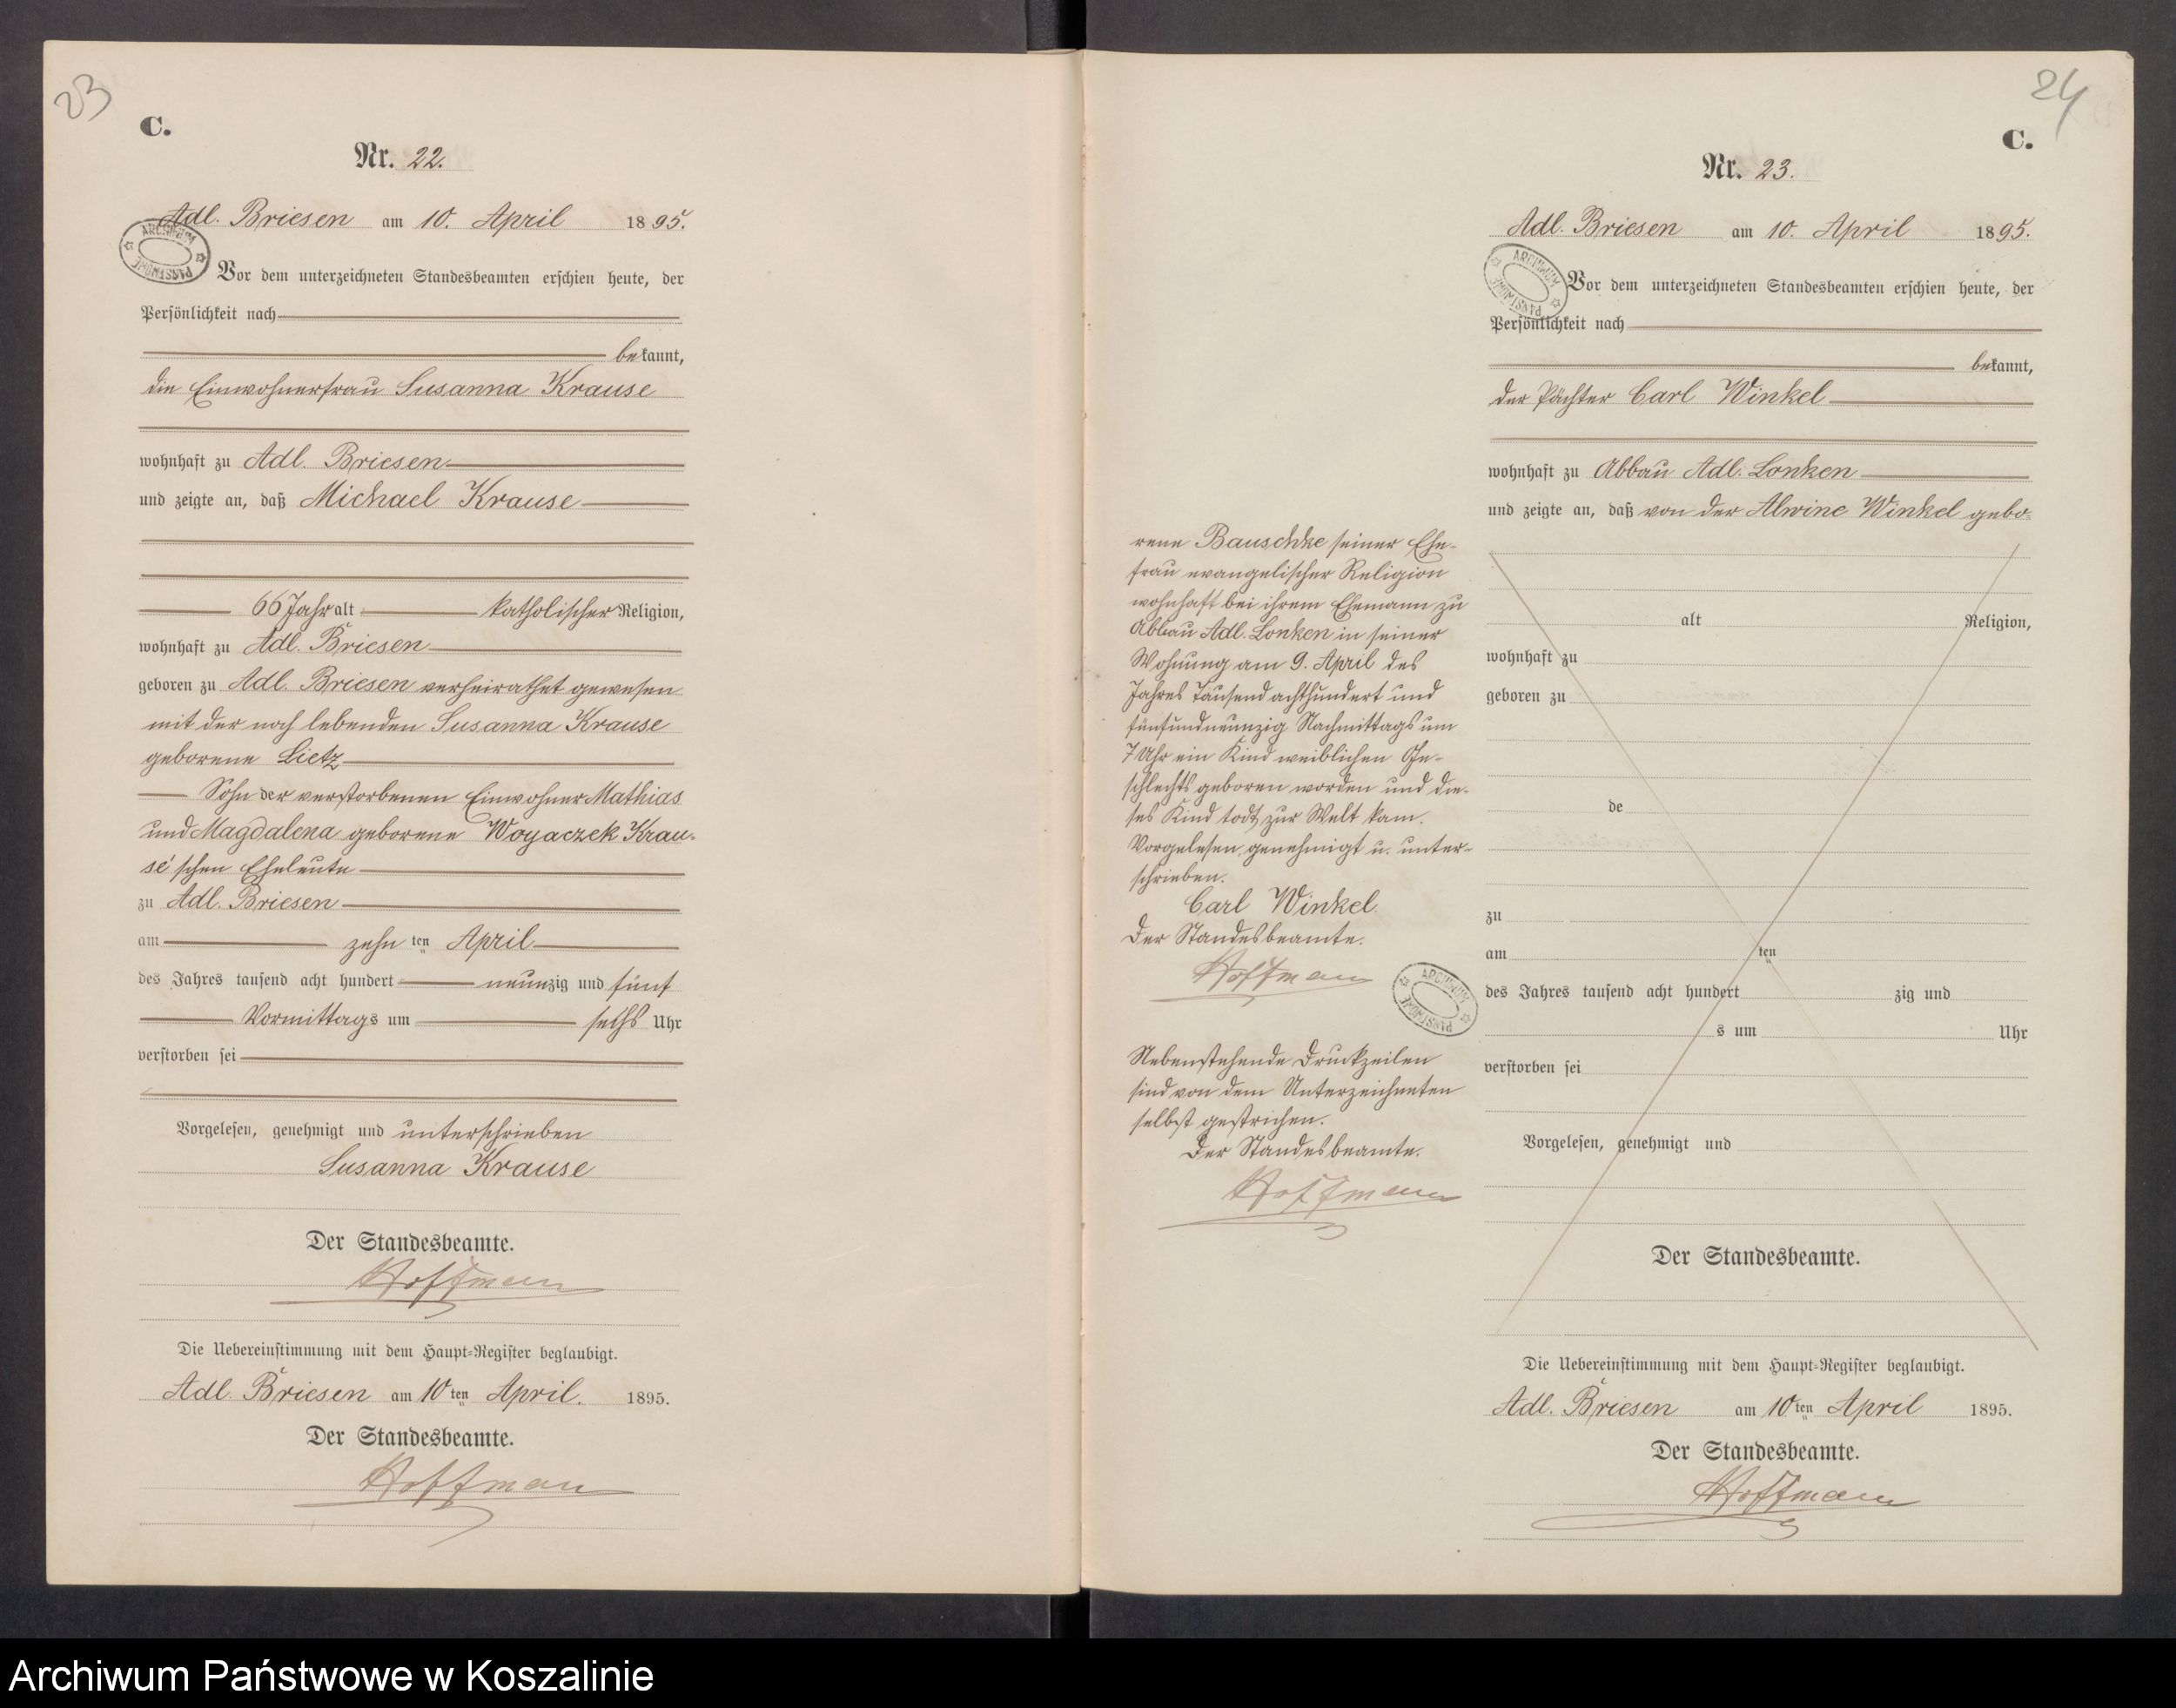 23
C.
Nr. 22.
Adl. Briesen am 10. April 1895.
ARCHIWUM PAŃSTWOWE
Vor dem unterzeichneten Standesbeamten erschien heute, der
Persönlichkeit nach
bekannt,
die Einwohnerfrau Susanna Krause
wohnhaft zu Adl. Briesen
und zeigte an, daß Michael Krause
66 Jahr alt katholischer Religion,
wohnhaft zu Adl. Briesen
geboren zu Adl. Briesen verheirathet gewesen
mit der noch lebenden Susanna Krause
geborene Lietz
Sohn der verstorbenen Einwohner Mathias
und Magdalena geborene Woyaczek Krau-
se'schen Eheleute
zu Adl. Briesen
am zehn ten April
des Jahres tausend acht hundert neunzig und fünf
Vormittags um sechs Uhr
verstorben sei
Vorgelesen, genehmigt und unterschrieben
Susanna Krause
Der Standesbeamte.
Hoffmann
Die Uebereinstimmung mit dem Haupt-Register beglaubigt.
Adl. Briesen am 10ten April. 1895.
Der Standesbeamte.
Hoffmann
24
C.
Nr. 23.
Adl. Briesen am 10. April 1895.
ARCHIWUM PAŃSTWOWE
Vor dem unterzeichneten Standesbeamten erschien heute, der
Persönlichkeit nach
bekannt,
der Pächter Carl Winkel
wohnhaft zu Abbau Adl. Lonken
und zeigte an, daß von der Alwine Winkel gebo-
rene Bauschke seiner Ehe-
frau evangelischer Religion
wohnhaft bei ihrem Ehemann zu
Abbau Adl. Lonken in seiner
Wohnung am 9. April des
Jahres Tausend achthundert und
fünfundneunzig Nachmittags um
7 Uhr ein Kind weiblichen Ge-
schlechts geboren worden und die-
ses Kind todt zur Welt kam.
Vorgelesen, genehmigt u. unter-
schrieben.
Carl Winkel
Der Standesbeamte.
Hoffmann
ARCHIWUM PAŃSTWOWE
Nebenstehende Druckzeilen
sind von dem Unterzeichneten
selbst gestrichen.
Der Standesbeamte.
Hoffmann
alt Religion,
wohnhaft zu
geboren zu
de
zu
am ten
des Jahres tausend acht hundert zig und
s um Uhr
verstorben sei
Vorgelesen, genehmigt und
Der Standesbeamte.
Die Uebereinstimmung mit dem Haupt-Register beglaubigt.
Adl. Briesen am 10ten April 1895.
Der Standesbeamte.
Hoffmann
Archiwum Państwowe w Koszalinie